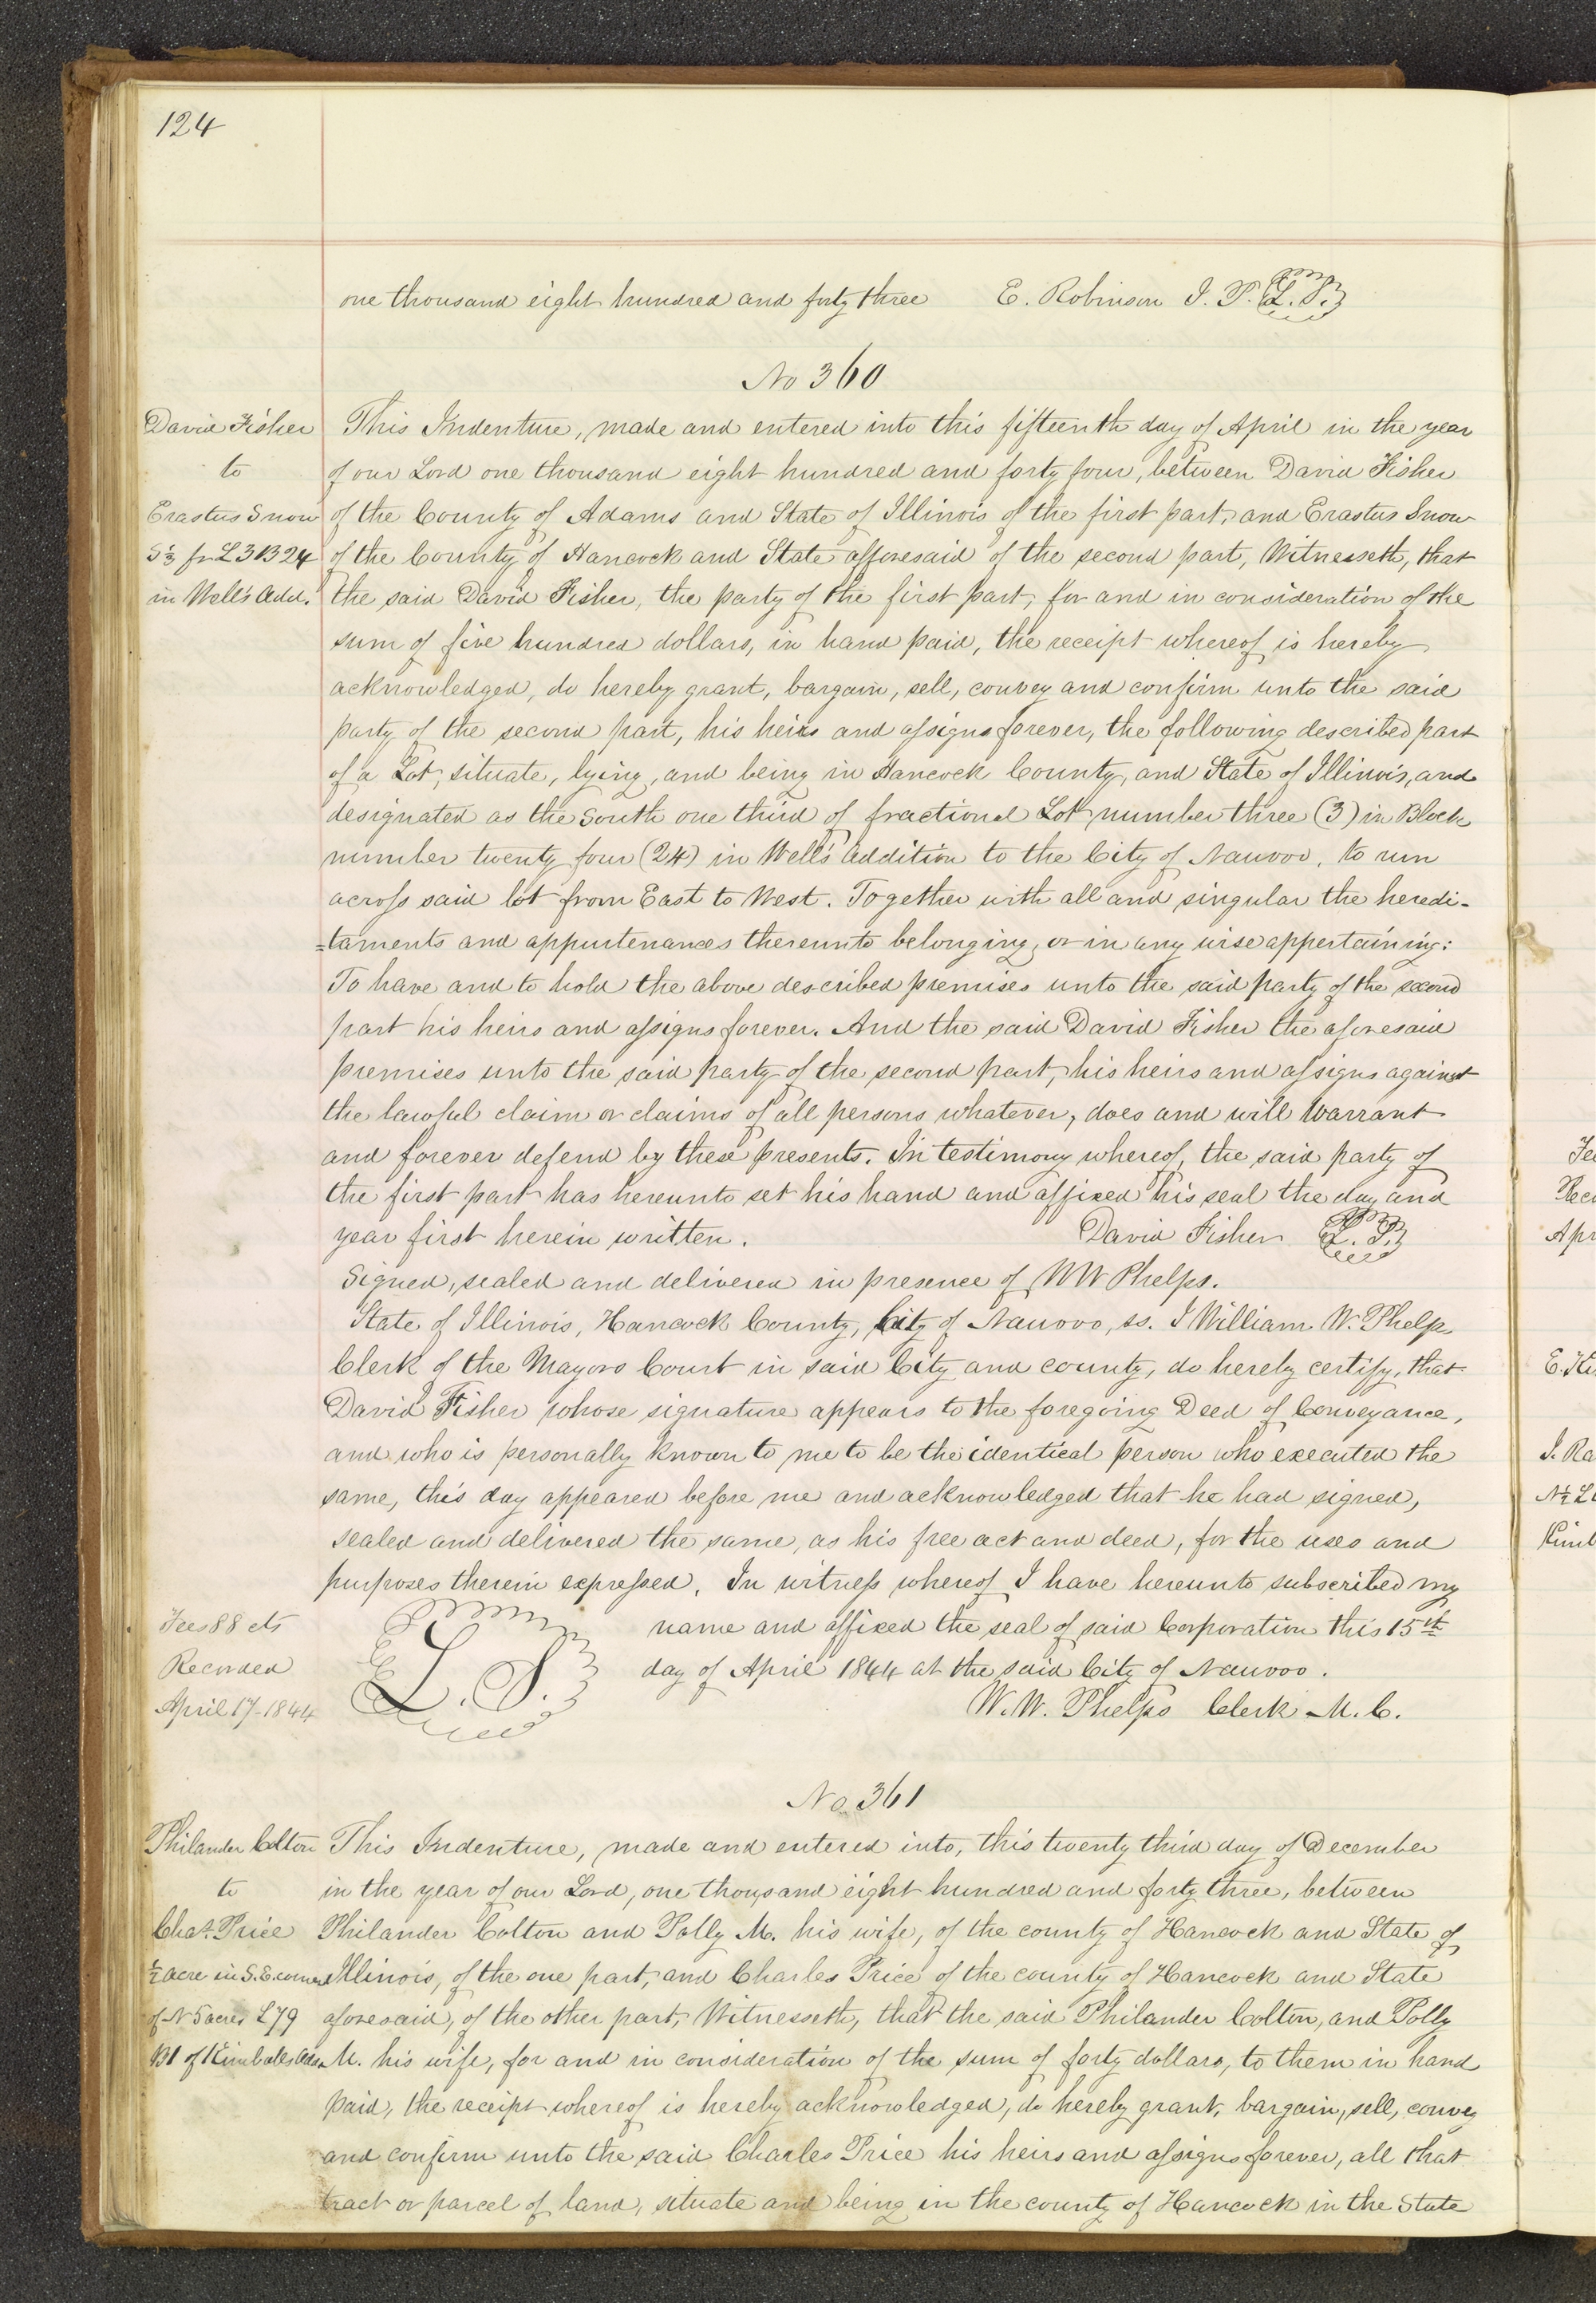 124
one thousand eight hundred and forty three E. Robinson J. P. L. S.
No 360
David Fisher
to
Erastus Snow
S⅓ fr L3 B24
in Well's Add.
This Indenture, made and entered into this fifteenth day of April in the year
of our Lord one thousand eight hundred and forty four, between David Fisher
of the County of Adams and State of Illinois of the first part, and Erastus Snow
of the County of Hancock and State afforesaid of the second part, Witnesseth, that
the said David Fisher, the party of the first part, for and in consideration of the
sum of five hundred dollars, in hand paid, the receipt whereof is hereby
acknowledged, do hereby grant, bargain, sell, convey and confirm unto the said
party of the second part, his heirs and assigns forever, the following described part
of a Lot, situate, lying, and being in Hancock County, and State of Illinois, and
designated as the South one third of fractional Lot number three (3) in Block
number twenty four (24) in Well's addition to the City of Nauvoo, to run
across said lot from East to West. Together with all and singular the heredi-
=taments and appurtenances thereunto belonging, or in any wise appertaining:
To have and to hold the above described premises unto the said party of the second
part his heirs and assigns forever. And the said David Fisher the aforesaid
premises unto the said party of the second part, his heirs and assigns against
the lawful claim or claims of all persons whatever, does and will warrant
and forever defend by these presents. In testimony whereof, the said party of
the first part has hereunto set his hand and affixed his seal the day and
year first herein written. David Fisher L. S.
Signed, sealed and delivered in presence of W W Phelps.
State of Illinois, Hancock County, City of Nauvoo, ss. I William W. Phelps
Clerk of the Mayors Court in said City and county, do hereby certify, that
David Fisher whose signature appears to the foregoing Deed of Conveyance,
and who is personally known to me to be the identical person who executed the
same, this day appeared before me and acknowledged that he had signed,
sealed and delivered the same, as his free act and deed, for the uses and
purposes therein expressed. In witness whereof I have hereunto subscribed my
name and affixed the seal of said Corporation this 15th
day of April 1844 at the said City of Nauvoo.
L. S.
W. W. Phelps Clerk M. C.
Fees 88 cts
Recorded
April 17-1844
No 361
Philander Colton
to
Chas. Price
½ acre in S.E. corner
of N 5 acres L79
B1 of Kimballs Add
This Indenture, made and entered into, this twenty third day of December
in the year of our Lord, one thousand eight hundred and forty three, between
Philander Colton and Polly M. his wife, of the county of Hancock and State of
Illinois, of the one part, and Charles Price of the county of Hancock and State
aforesaid, of the other part, Witnesseth, that the said Philander Colton, and Polly
M. his wife, for and in consideration of the sum of forty dollars, to them in hand
paid, the receipt whereof is hereby acknowledged, do hereby grant, bargain, sell, convey
and confirm unto the said Charles Price his heirs and assigns forever, all that
tract or parcel of land, situate and being in the county of Hancock in the State